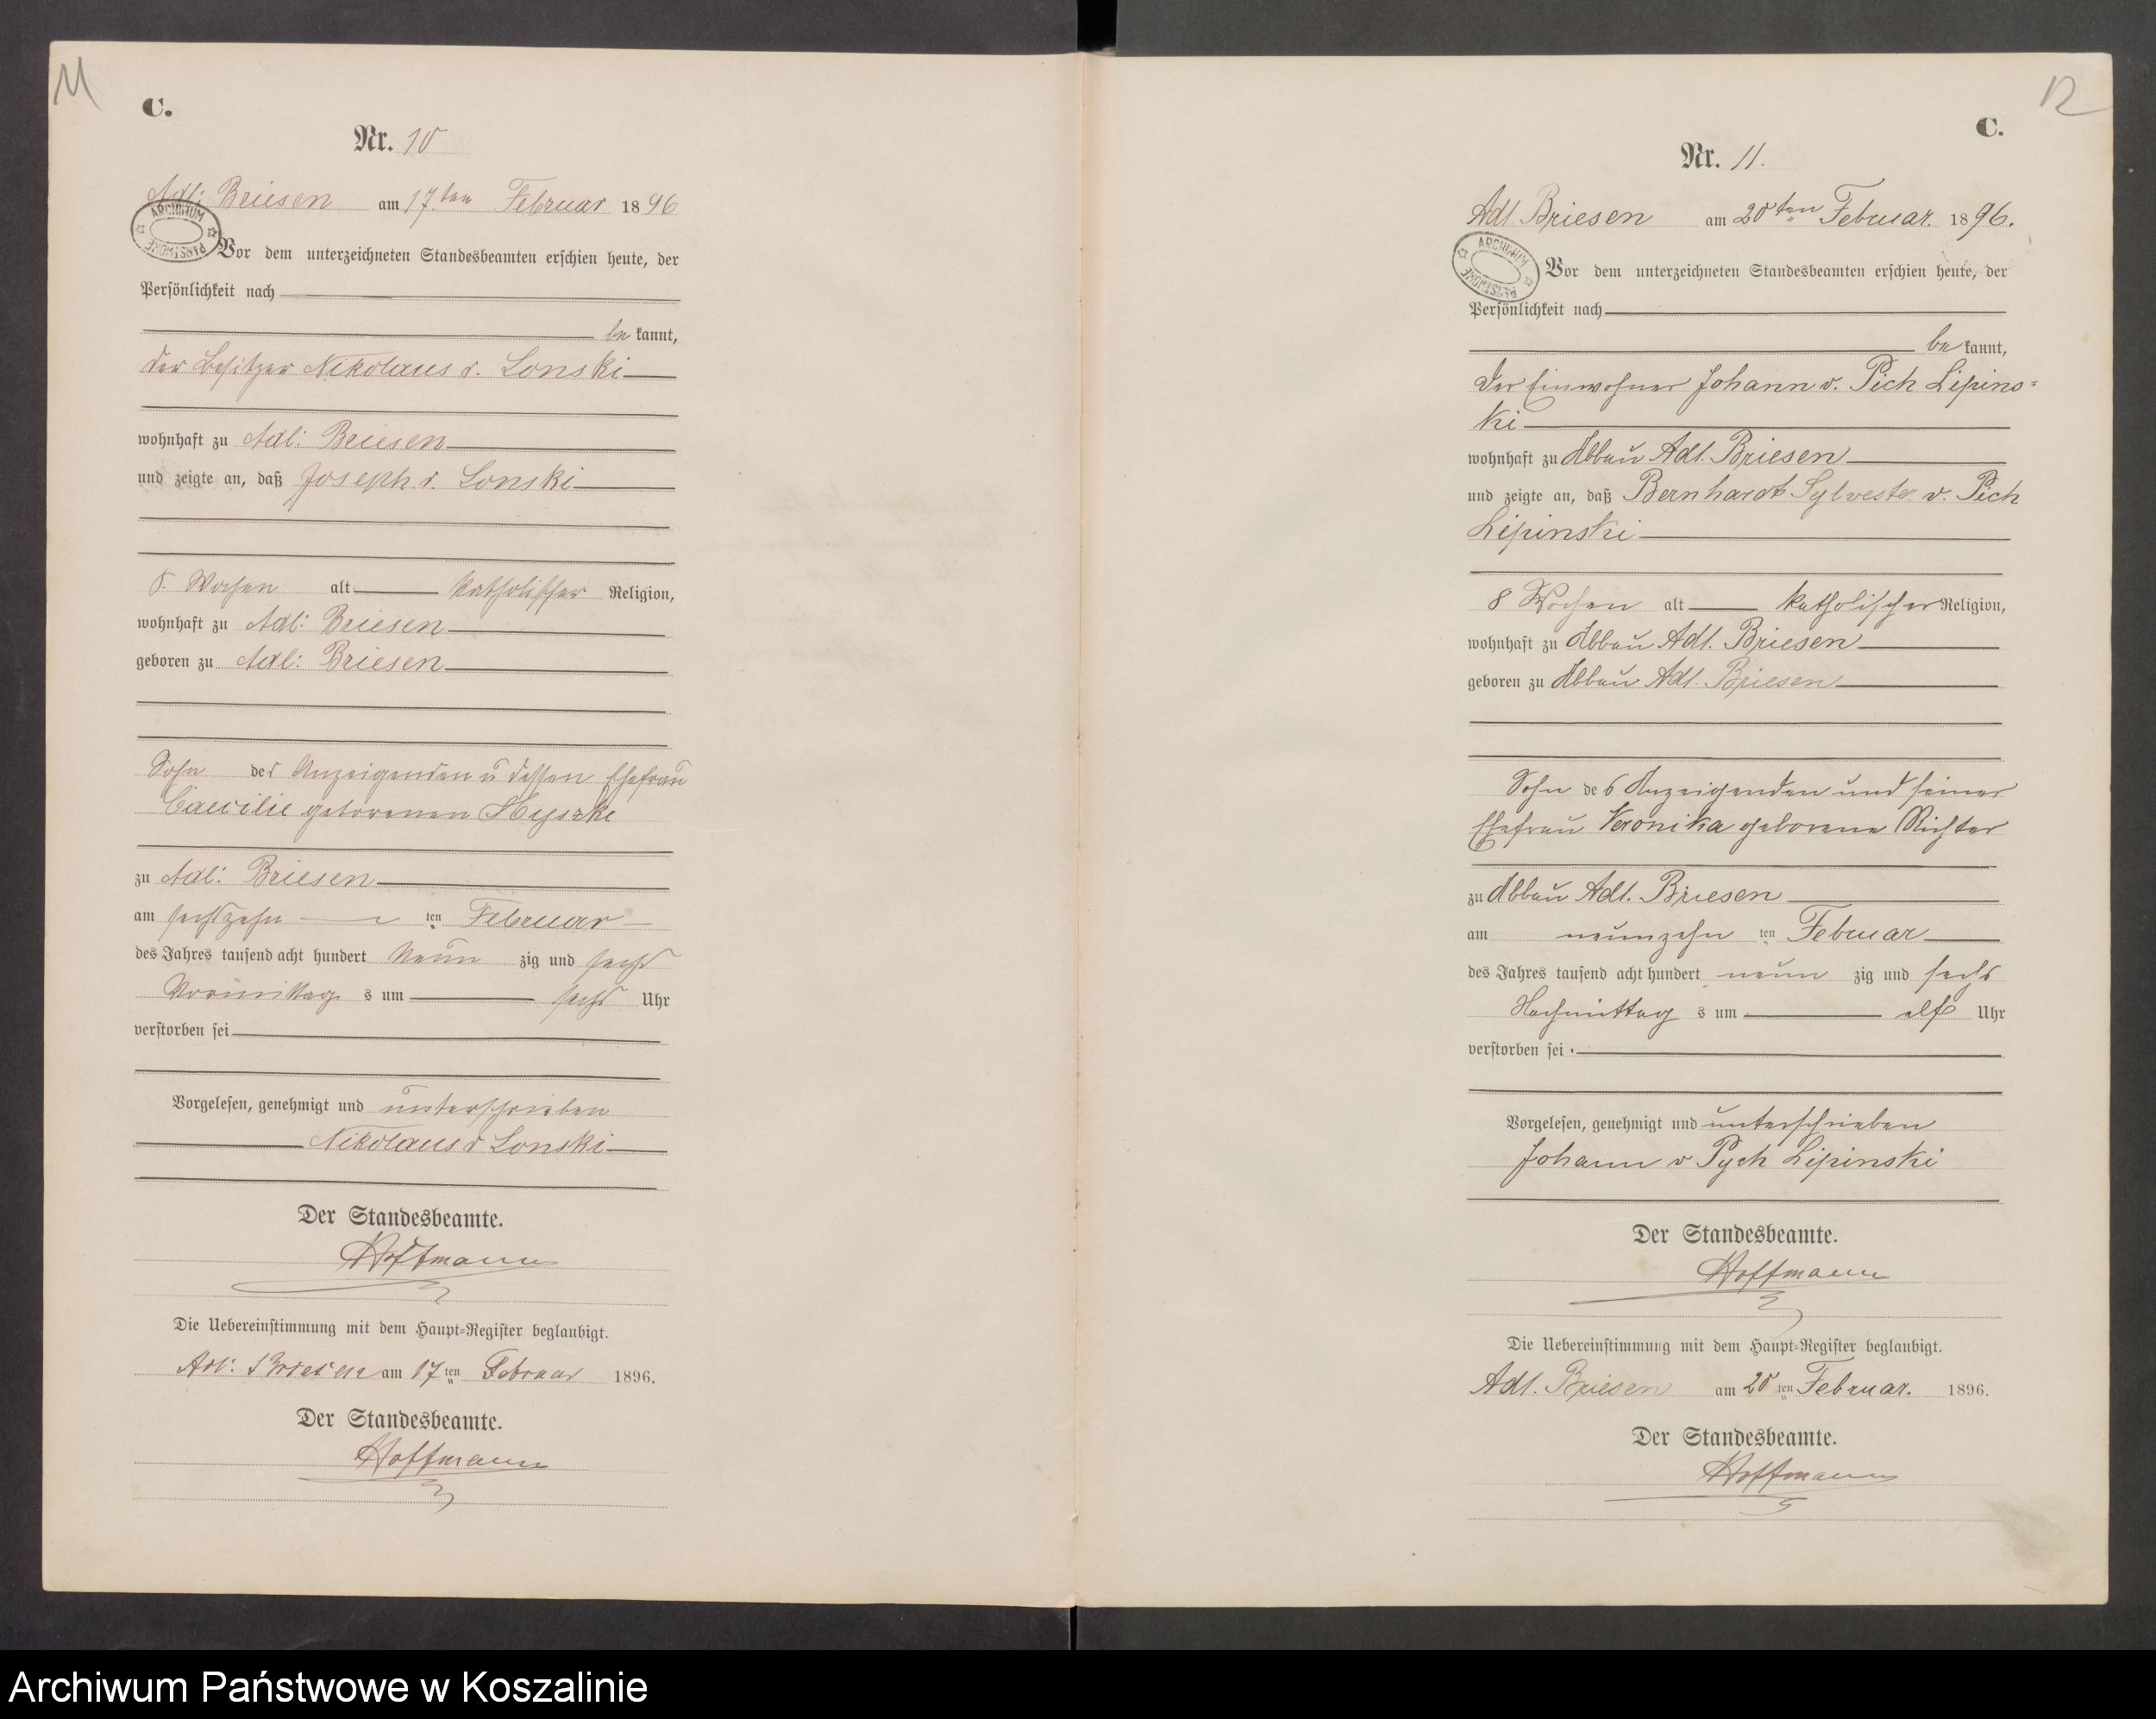 11
C.
Nr. 10
Adl: Briesen am 17.ten Februar 1896
ARCHIWUM PAŃSTWOWE
Vor dem unterzeichneten Standesbeamten erschien heute, der
Persönlichkeit nach
be kannt,
der Besitzer Nikolaus v. Lonski
wohnhaft zu Adl: Briesen
und zeigte an, daß Joseph v. Lonski
8. Wochen alt katholischer Religion,
wohnhaft zu Adl: Briesen
geboren zu Adl: Briesen
Sohn des Anzeigenden u dessen Ehefrau
Caecilie geborenen
zu Adl: Briesen
am sechszehn ten Februar
des Jahres tausend acht hundert Neun zig und sechs
Vormittag s um sechs Uhr
verstorben sei
Vorgelesen, genehmigt und unterschrieben
Nikolaus v Lonski
Der Standesbeamte.
Hoffmann
Die Uebereinstimmung mit dem Haupt-Register beglaubigt.
Adl: Briesen am 17ten Februar 1896.
Der Standesbeamte.
Hoffmann
12
C.
Nr. 11.
Adl. Briesen am 20ten Februar. 1896.
ARCHIWUM PAŃSTWOWE
Vor dem unterzeichneten Standesbeamten erschien heute, der
Persönlichkeit nach
be kannt,
der Einwohner Johann v. Pich Lipins=
ki
wohnhaft zu Abbau Adl. Briesen
und zeigte an, daß Bernhardt Sylvester v. Pich
Lipinski
8 Wochen alt katholischer Religion,
wohnhaft zu Abbau Adl. Briesen
geboren zu Abbau Adl. Briesen
Sohn des Anzeigenden und seiner
Ehefrau Veronika geborene Richter
zu Abbau Adl. Briesen
am neunzehn ten Februar
des Jahres tausend acht hundert neun zig und sechs
Nachmittag s um elf Uhr
verstorben sei
Vorgelesen, genehmigt und unterschrieben
Johann v Pych Lipinski
Der Standesbeamte.
Hoffmann
Die Uebereinstimmung mit dem Haupt-Register beglaubigt.
Adl. Briesen am 20ten Februar. 1896.
Der Standesbeamte.
Hoffmann
Archiwum Państwowe w Koszalinie